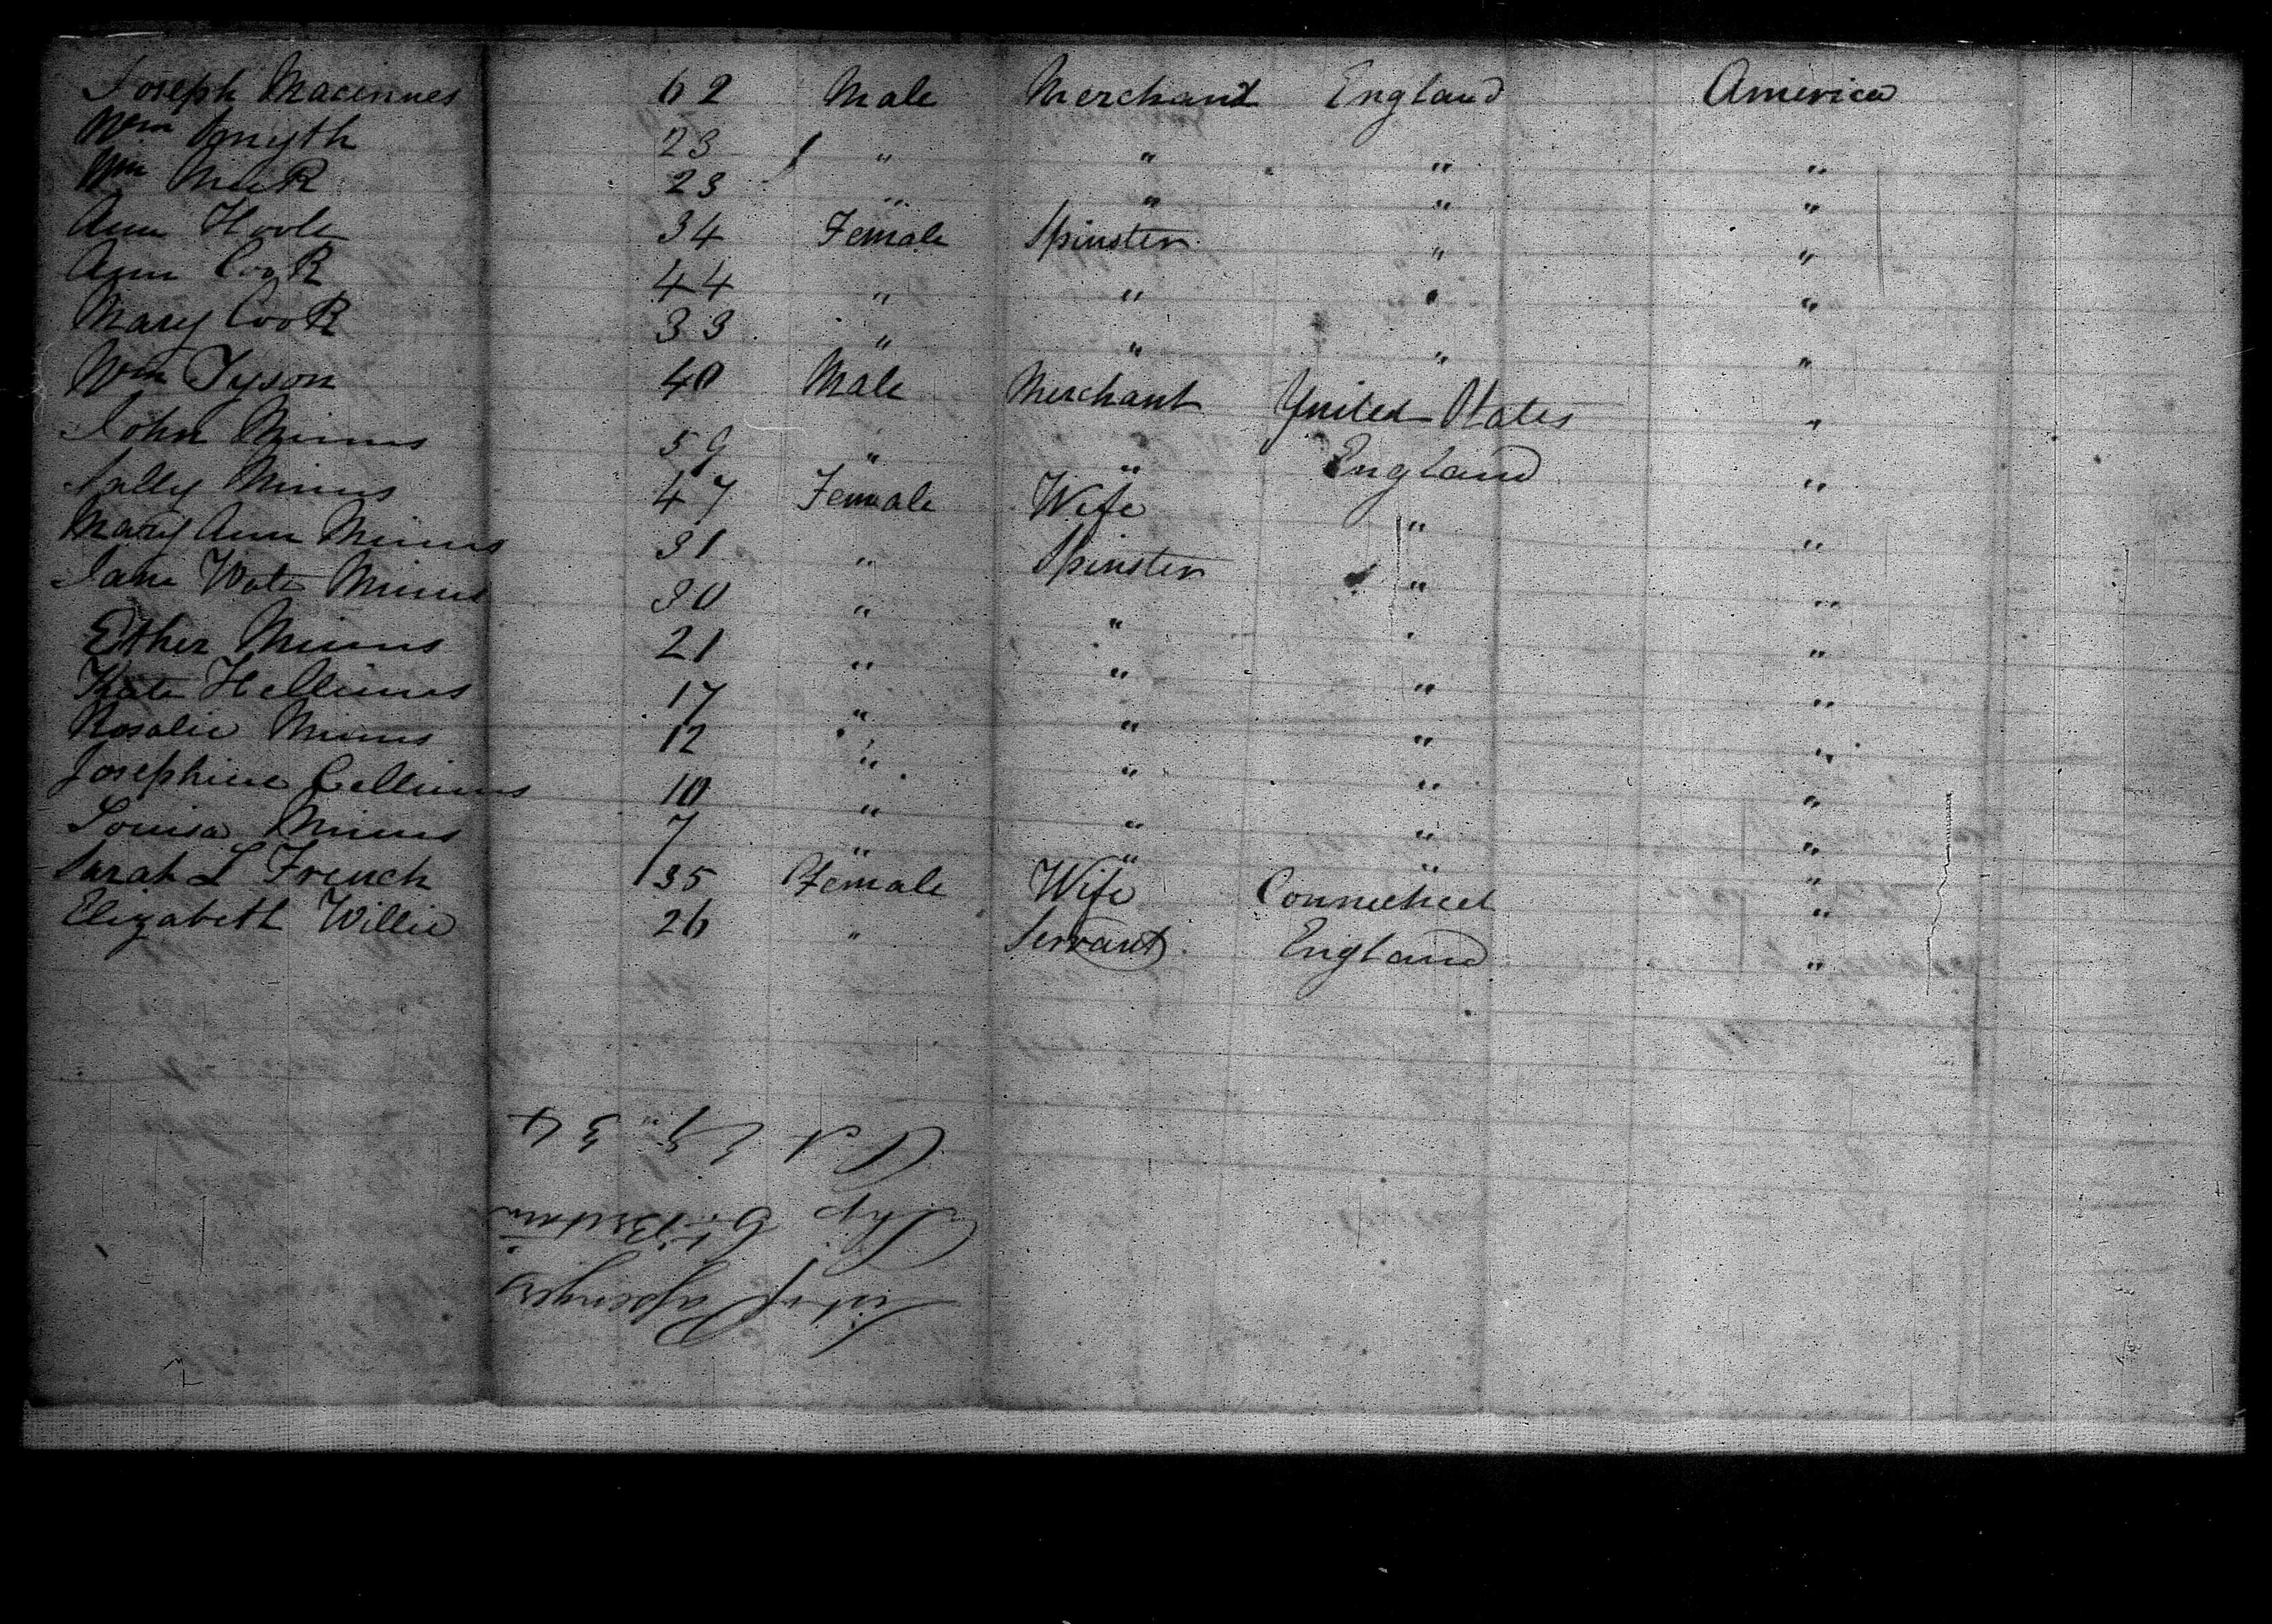 Joseph Macinnes 62 Male Merchant England America
Wm Smyth 23 " " " "
Wm Muir 23 " " " "
Ann Hoole 34 Female Spinster " "
Ann Cook 44 " " " "
Mary Cook 33 " " " "
Wm Tyson 40 Male Merchant United States "
John Mimms 59 " " England "
Sally Mimms 47 Female Wife " "
Mary Ann Mimms 31 " Spinster " "
Jane Mimms 30 " " " "
Esther Mimms 21 " " " "
Kate Mimms 17 " " " "
Rosalie Mimms 12 " " " "
Josephine 10 " " " "
Louisa Mimms 7 " " " "
Sarah L French 35 Female Wife Connecticut "
Elizabeth Willie 26 " Servant England "
List of Passengers
Ship Gt Britain